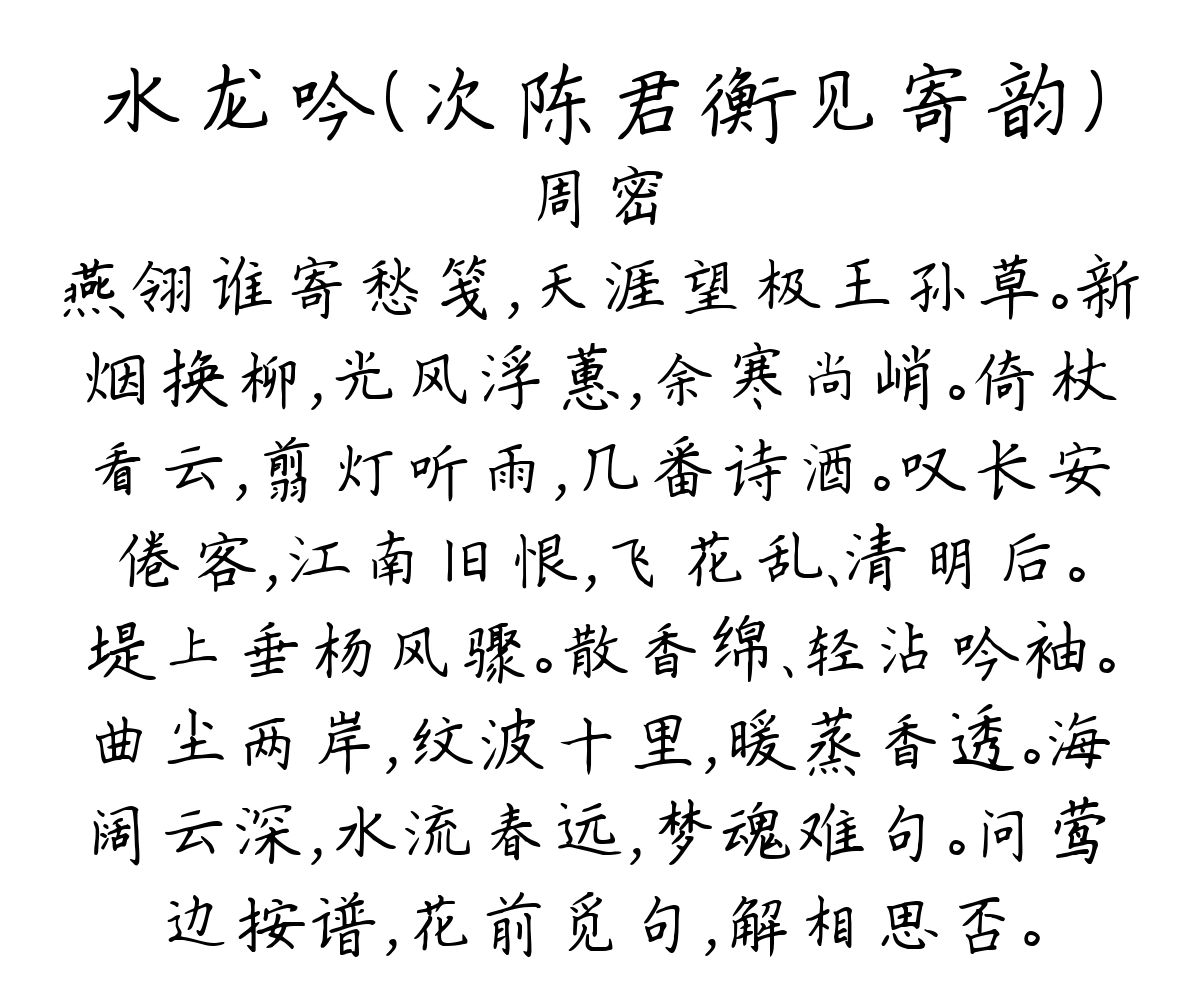 水龙吟(次陈君衡见寄韵)
周密
燕翎谁寄愁笺,天涯望极王孙草。新
烟换柳,光风浮蕙,余寒尚峭。倚杖
看云,剪灯听雨,几番诗酒。叹长安
倦客,江南旧恨,飞花乱、清明后。
堤上垂杨风骤。散香绵、轻沾吟袖。
曲尘两岸,纹波十里,暖蒸香透。海
阔云深,水流春远,梦魂难句。问莺
边按谱,花前觅句,解相思否。